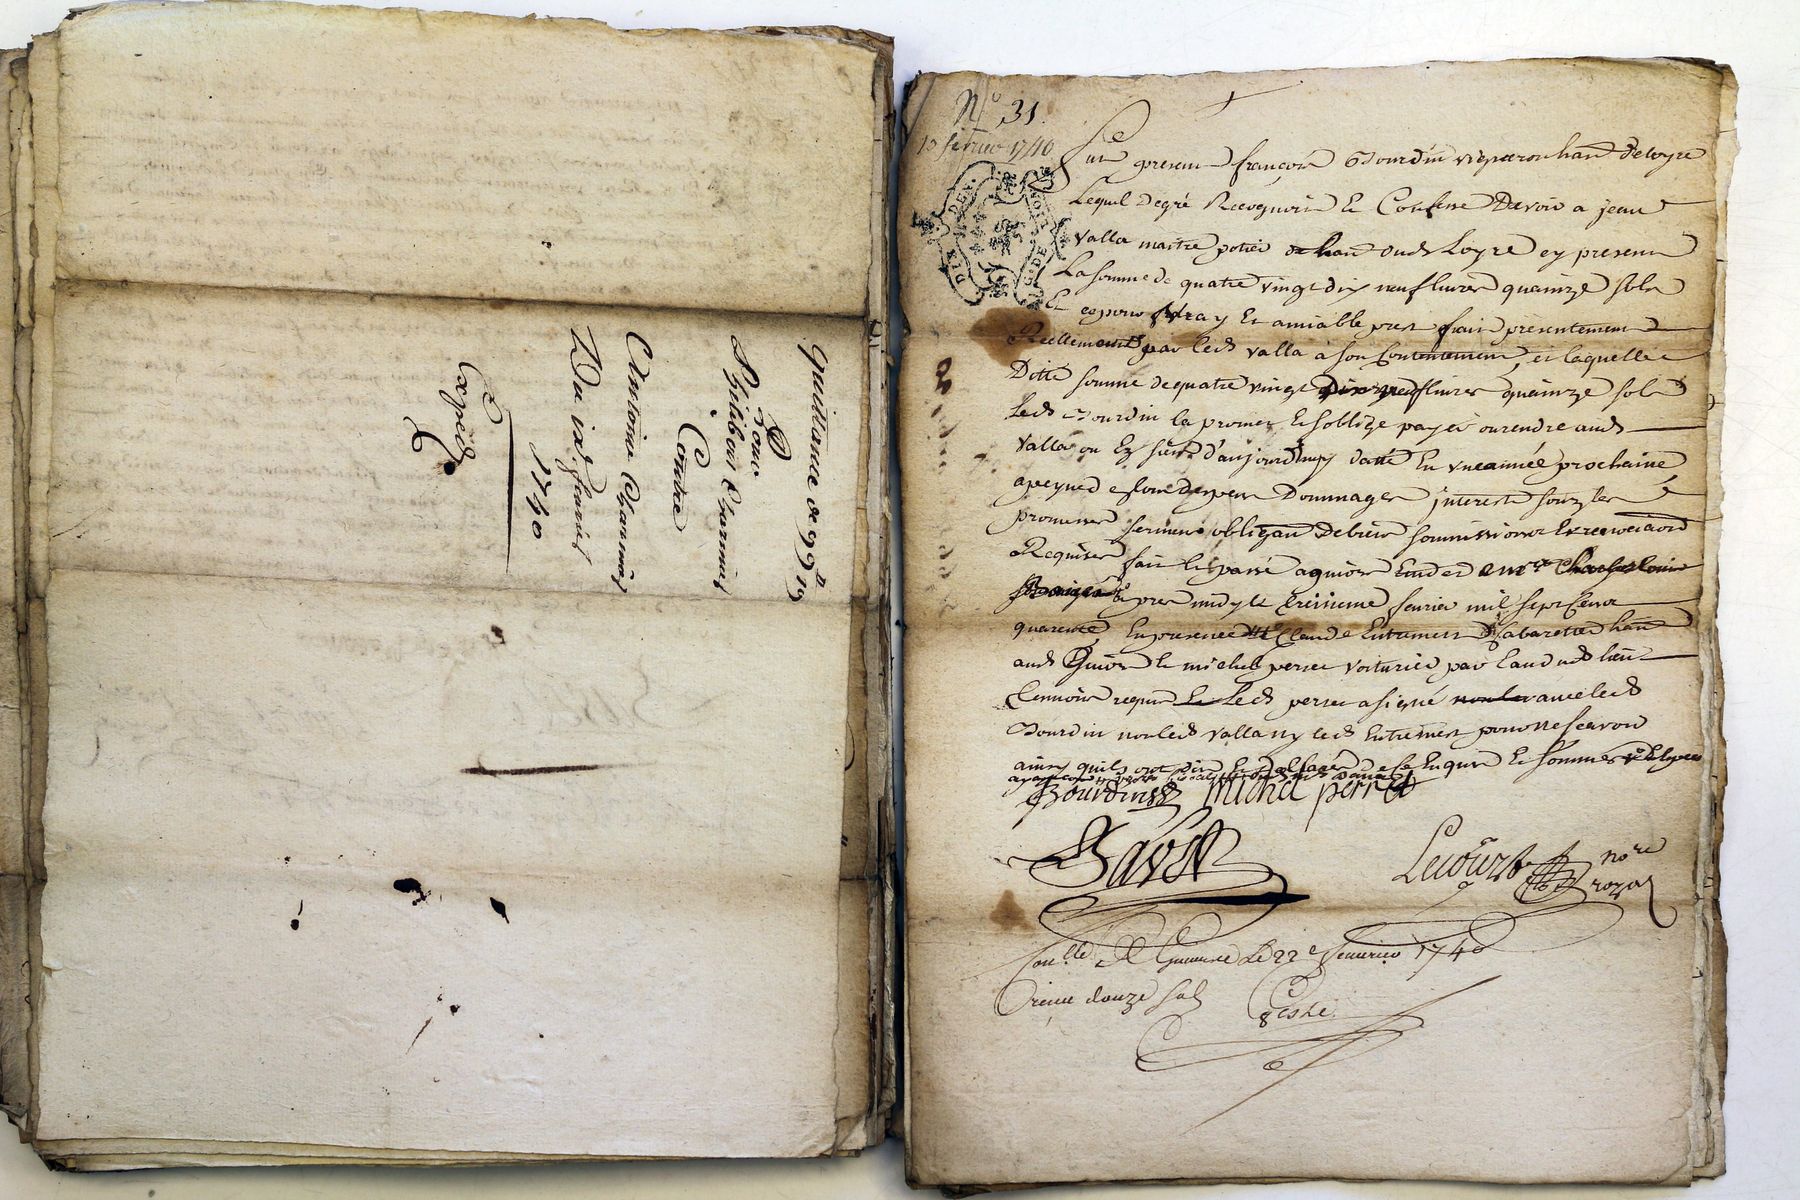 quittance de 99ᵗᵗ 19
Pour
Philibert Charmet
Contre
Antoine Charmet
Du ixᵉ fevrier
1740
Expediée
N° 31.
13 fevrier 1740
DES DEN.
G. DE
fut present françois Bourdin vigneron hant deloyre
Lequel degré Recognoit et Confesse Devoir a jean
Valla maitre potier hant aud Loyre cy present
La somme de quatre vingt dix neuf livres quainze sols
Et ce pour vray Et amiable prest fait presentement
Reellement par led valla à son Contentement, et laquelle
Ditte somme de quatre vingt dix neuf livres quainze sols
Led Bourdin la promet et soblige payer ou rendre aud
Valla ou Es siens d'aujourdhuy datte En une année prochaine
a peyne de tous despens Dommages interest sous les
promesses serment obligaon De biens soumissions Et renonciaons
Requises fait et passé a quions Etude
apres midy le treisieme fevrier mil sept Cent
quarente En presence de Claude Entremest Cabaretier hant
aud Quion et michel perret voiturier par eaud lieu
temoins requis Led perret a signé avec led
Bourdin non led Valla ny led Entremest pour ne scavoir
ainsy quils ont dit de ce Enquis Et sommés
Bourdin michel perret
Bavet
Lecourt noʳᵉ
royal
Conˡˡᵉ A le 22ᵉ fevrier 1740
Receu douze sols